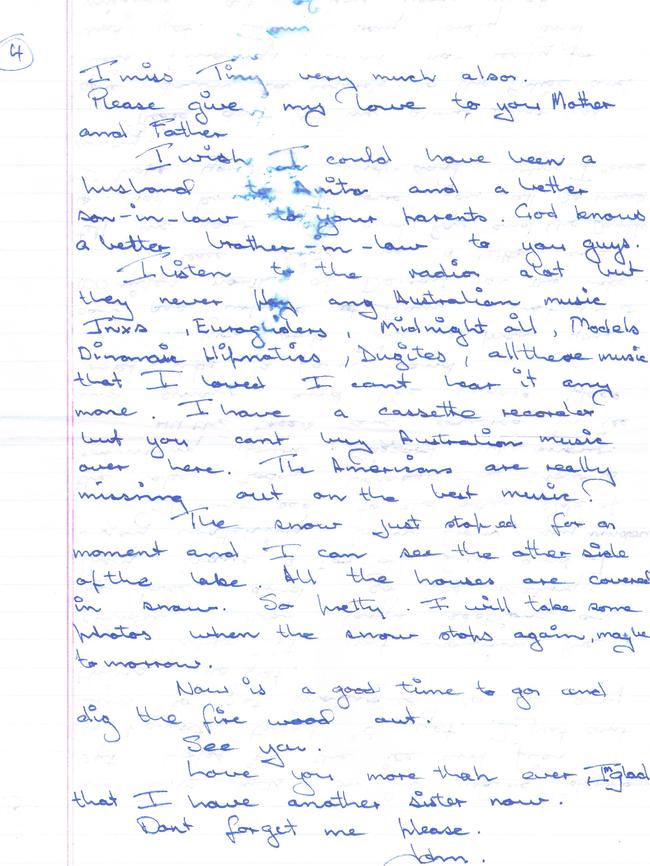 4
I miss Tiny very much also.
Please give my love to you Mother
and Father
I wish I could have been a
husband to Anita and a better
son-in-law to your parents. God knows
a better brother-in-law to you guys.
I listen to the radio alot but
they never play any Australian music
Inxs, Eurogliders, Midnight oil, Models
Dinamic Hipnotics, Dugites, all these music
that I loved I cant hear it any
more. I have a cassette recorder
but you cant buy Australian music
over here. The Americans are really
missing out on the best music!
The snow just stoped for a
moment and I can see the other side
of the lake. All the houses are covered
in snow. So pretty. I will take some
photos when the snow stops again, maybe
to morrow.
Now is a good time to go and
dig the fire wood out.
See ya.
Love you more than ever I'm glad
that I have another sister now.
Dont forget me please.
John.